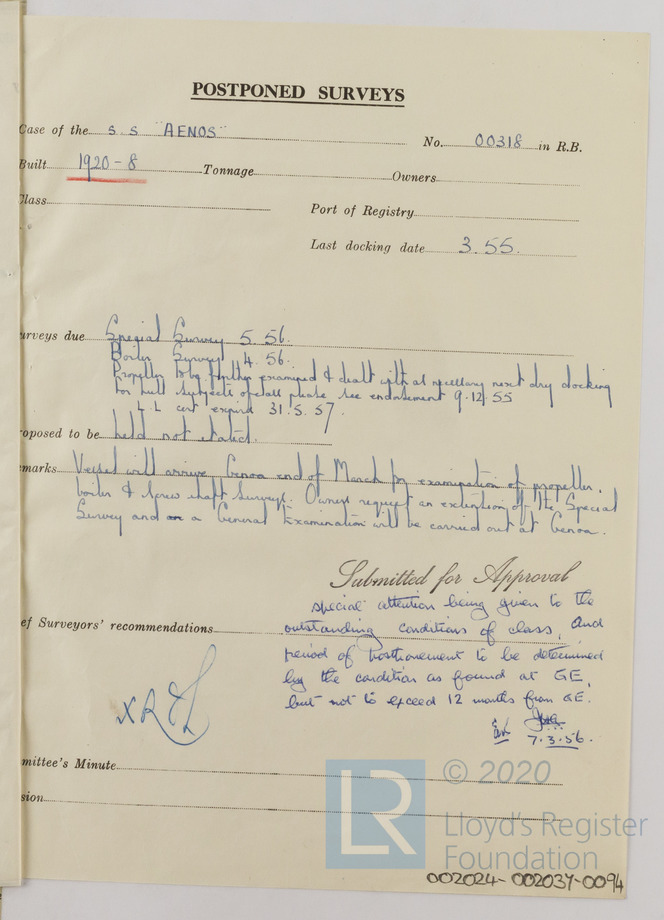 POSTPONED SURVEYS
Case of the S.S "AENOS" No. 00318 in R.B.
Built 1920-8 Tonnage Owners
Class
Port of Registry
Last docking date 3.55.
urveys due Special Survey 5.56.
Boiler Survey 4.56.
Propeller to be further examined & dealt with as necessary next dry docking
For hull subjects of all please see endorsement 9.12.55
L.L cert expired 31.5.57.
oposed to be held not stated.
marks Vessel will arrive Genoa end of March for examination of propeller,
boiler & screw shaft surveys. Owners request an extention of the Special
Survey and a General Examination will be carried out at Genoa.
Submitted for Approval
special attention being given to the
ef Surveyors' recommendations outstanding conditions of class, and
period of Postponement to be determined
by the condition as found at GE,
but not to exceed 12 months from GE.
7.3.56.
mittee's Minute
sion
LR © 2020
Lloyd's Register
Foundation
002024-002037-0094